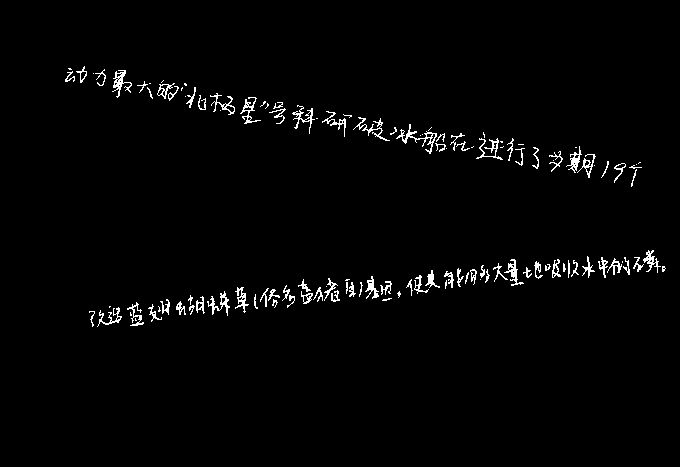 动力最大的“北极星”号科研破冰船在进行了为期19个
改造蓝翅蝴蝶草(俗名蓝猪耳)基因,使其能够大量地吸收水中的磷。